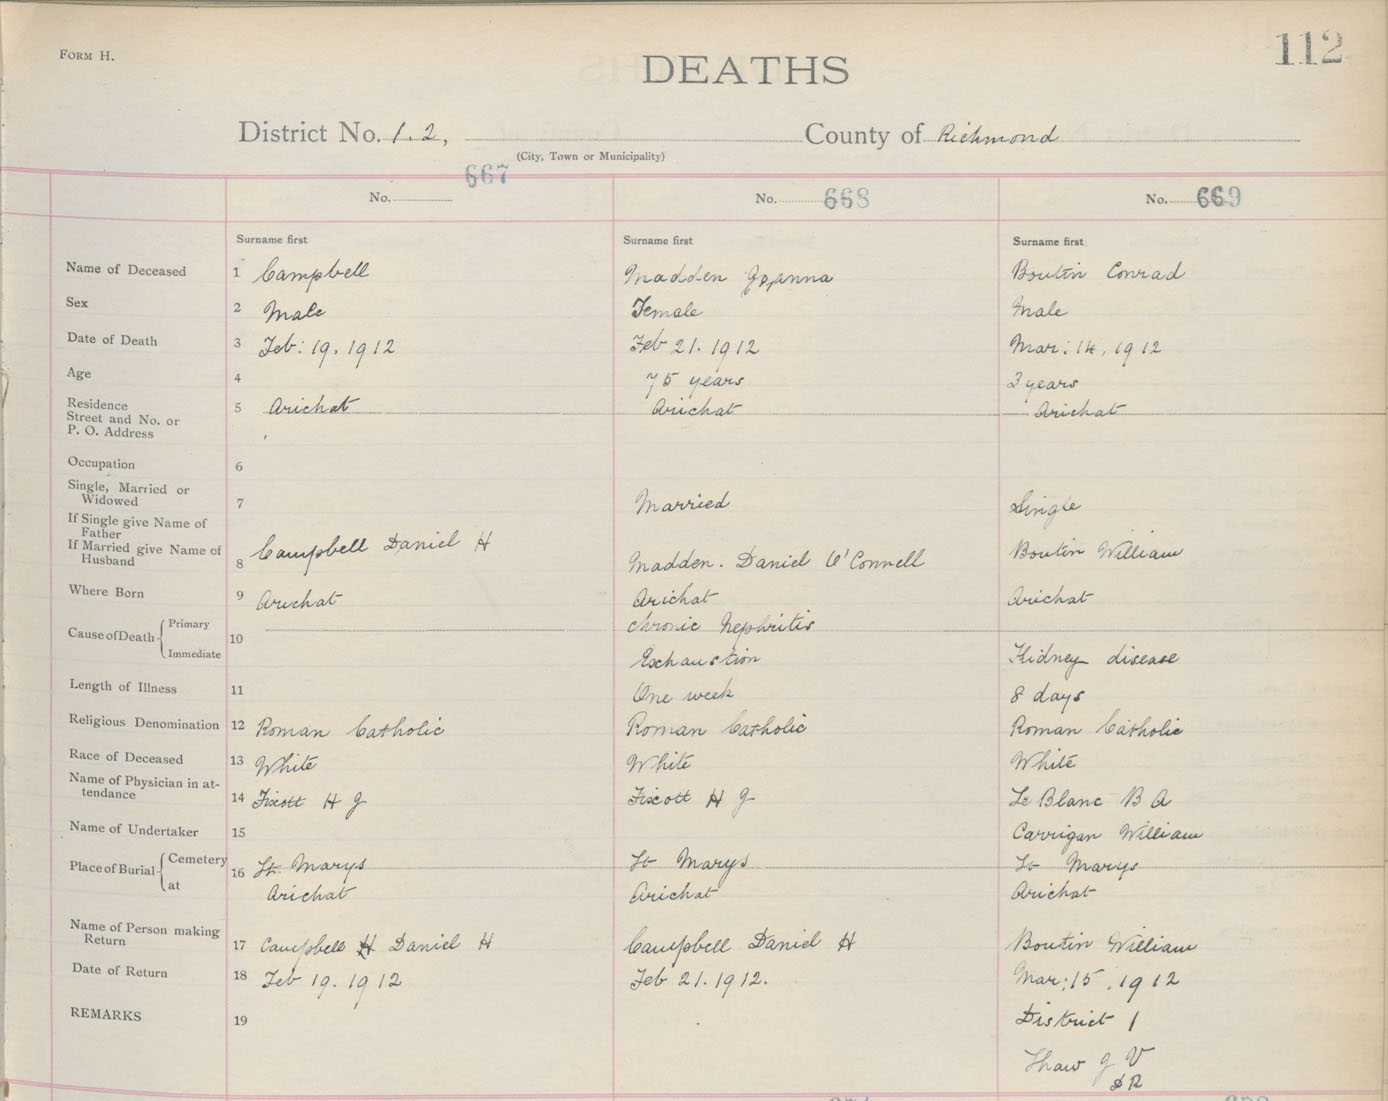 FORM H.
112
DEATHS
District No. 1.2, County of Richmond
(City, Town or Municipality)
No. 667 No. 668 No. 669
Surname first Surname first Surname first
Name of Deceased 1 Campbell Madden Joanna Boutin Conrad
Sex 2 Male Female Male
Date of Death 3 Feb: 19. 1912 Feb 21. 1912 Mar: 14, 1912
Age 4 75 years 3 years
Residence
Street and No. or
P. O. Address 5 Arichat Arichat Arichat
Occupation 6
Single, Married or
Widowed 7 Married Single
If Single give Name of
Father
If Married give Name of
Husband 8 Campbell Daniel H Madden. Daniel O'Connell Boutin William
Where Born 9 Arichat Arichat Arichat
Cause of Death Primary 10 Chronic Nephritis
Immediate Exhaustion Kidney disease
Length of Illness 11 One week 8 days
Religious Denomination 12 Roman Catholic Roman Catholic Roman Catholic
Race of Deceased 13 White White White
Name of Physician in at-
tendance 14 Fixott H J Fixott H J Le Blanc B A
Name of Undertaker 15 Carrigan William
Place of Burial Cemetery 16 St. Marys St Marys St Marys
at Arichat Arichat Arichat
Name of Person making
Return 17 Campbell H Daniel H Campbell Daniel H Boutin William
Date of Return 18 Feb 19. 1912 Feb 21. 1912. Mar: 15, 1912
REMARKS 19 District 1
J V
DR